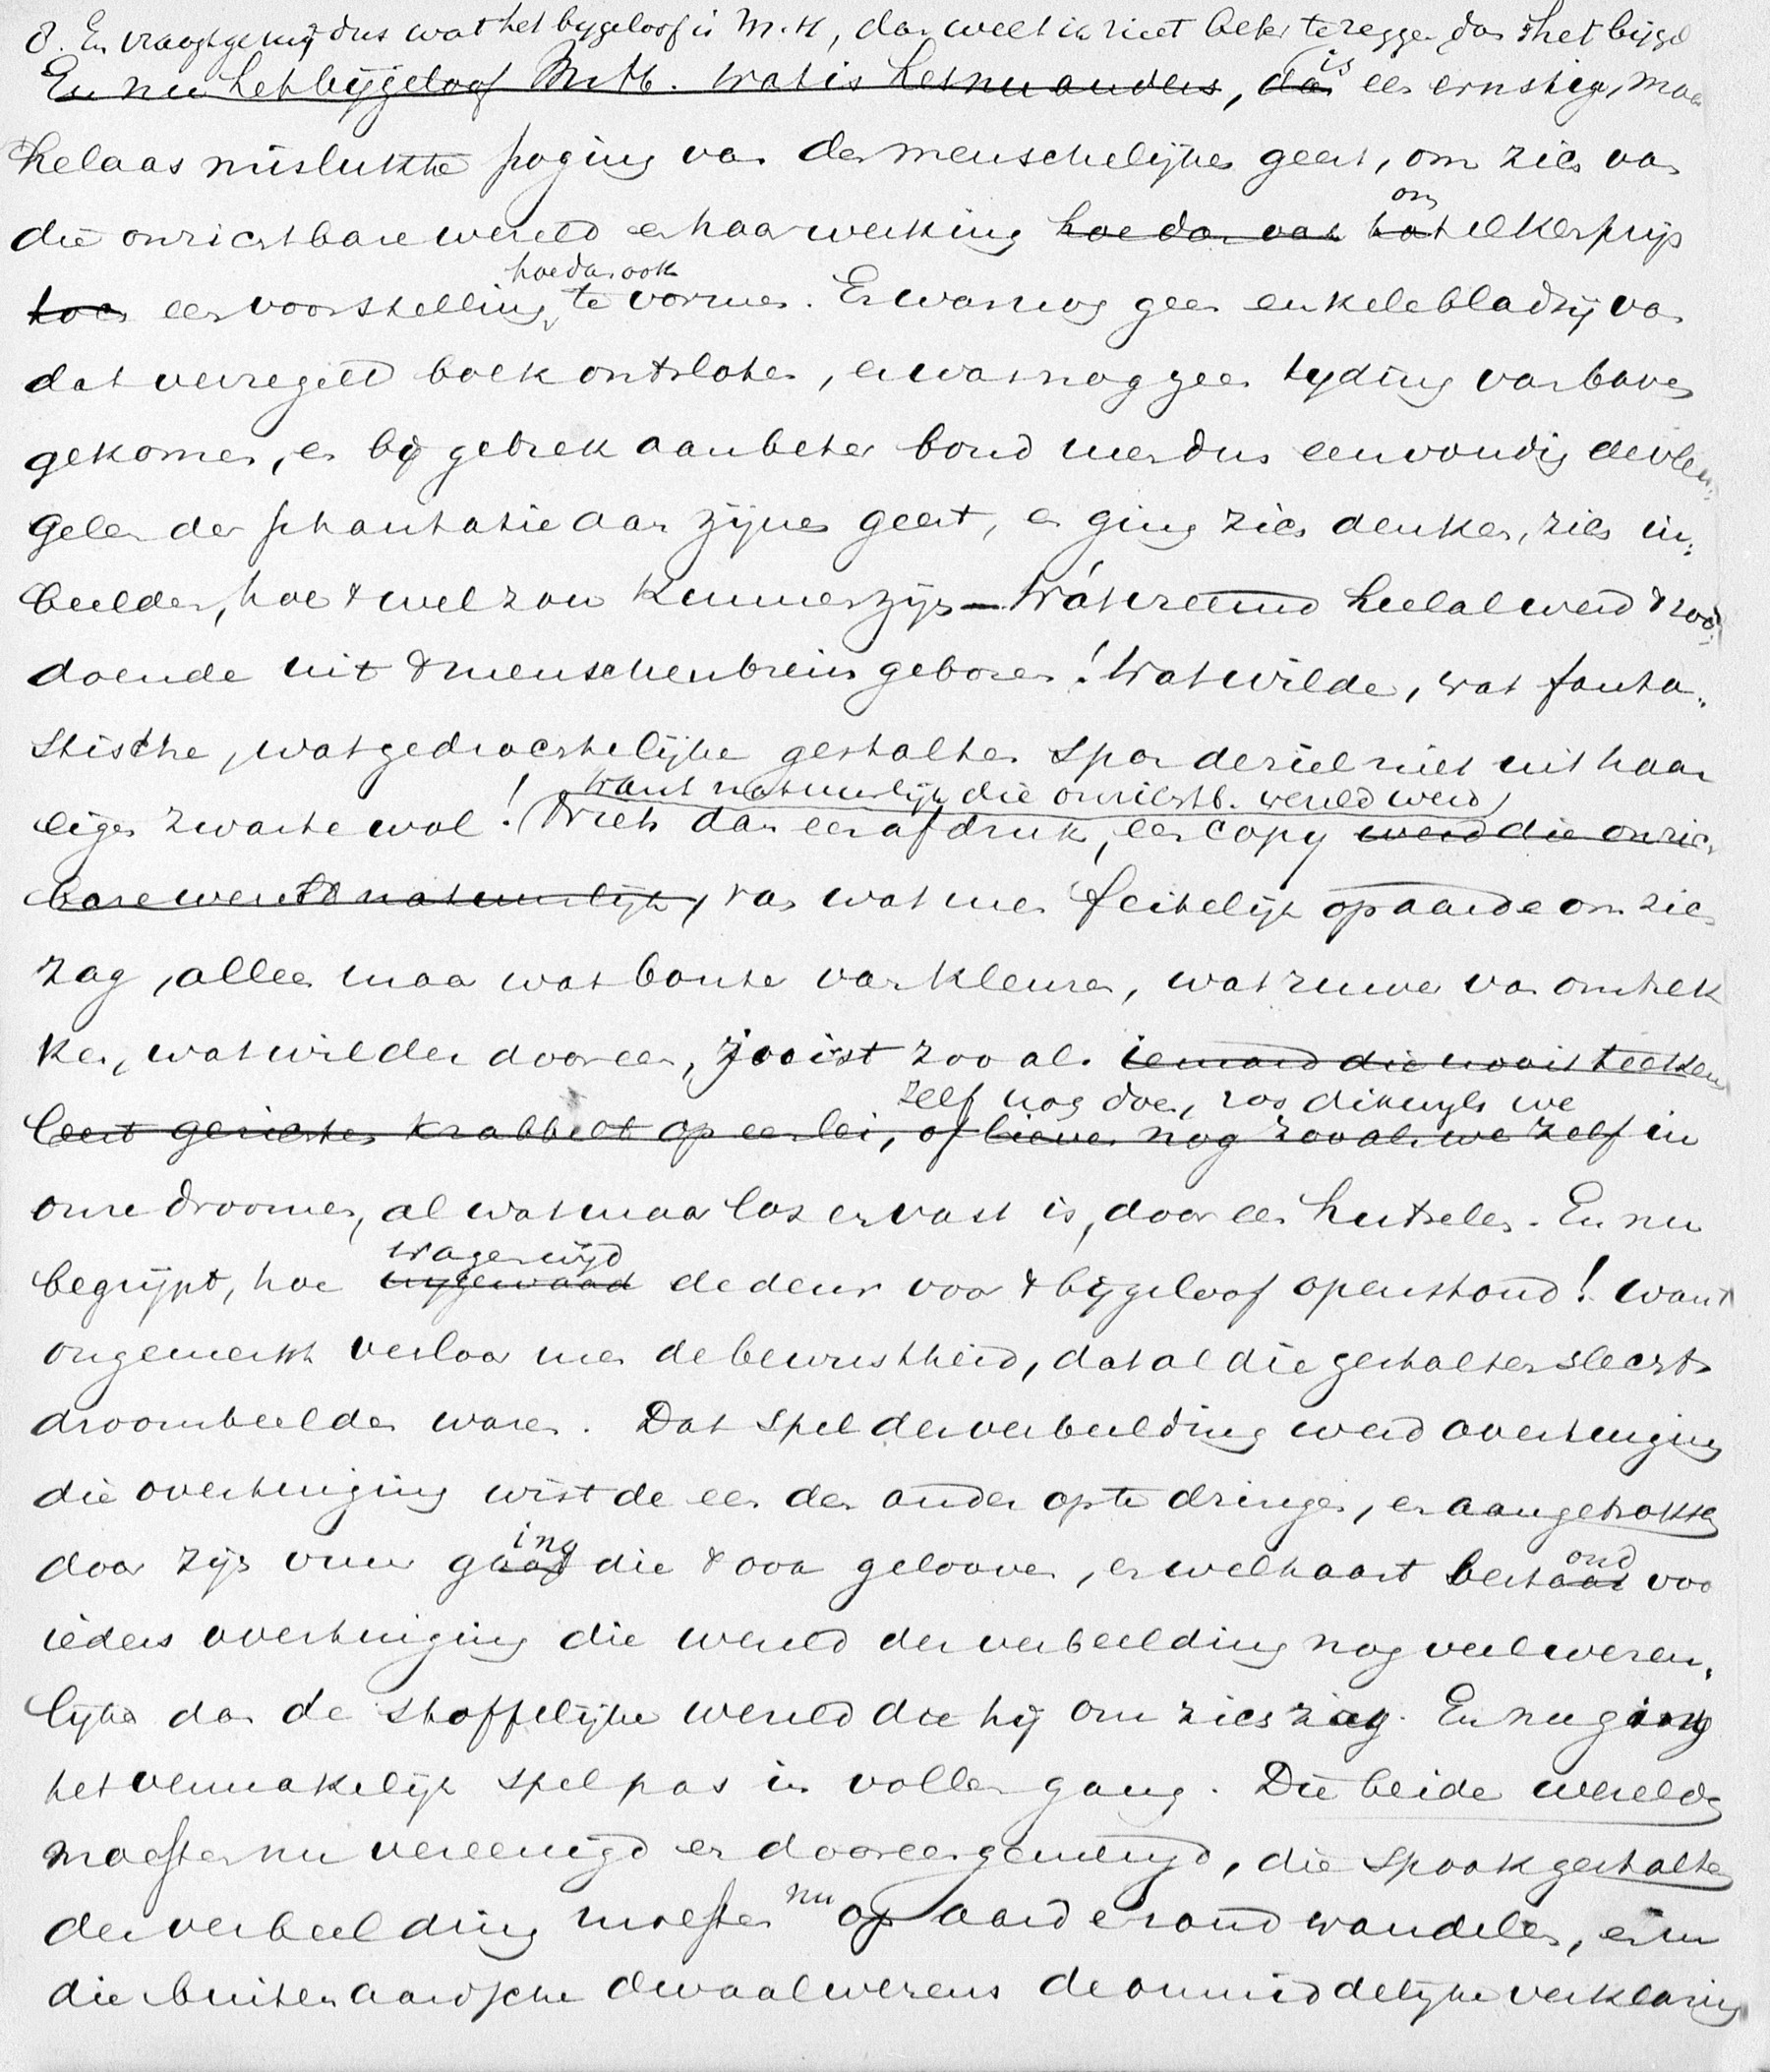 8. En vraagt ge mij dus wat het bygeloof is M. H, dan weet ik niet beter te zeggen dan dat het bijgel
En nu het bijgeloof M. H. wat is het nu anders, dan is een ernstige, maar
helaas mislukte poging van den menschelijken geest, om zich van
die onzichtbare wereld en haar werking hoe dan ook tot om elken prijs
toch een voorstelling, hoe dan ook te vormen. Er was nog geen enkele bladzij van
dat verzegeld boek ontsloten, er was nog geen tyding van boven
gekomen, en bij gebrek aan beter bond men dus eenvoudig de vleu-
gelen der phantasie aan zijnen geest, en ging zich denken, zich in-
beelden, hoe 't wel zou kunnen zijn — Wát vreemd heelal werd 't zoo-
doende uit 't menschenbrein geboren! Wat wilde, wat fanta-
stische, wat gedrochtelijke gestalten spon de ziel niet uit haar
eigen zwarte wol! want natuurlijk die onzichtb. wereld werd
Niets dan een afdruk, een copy werd die onzich
bare wereld natuurlijk, van wat men feitelijk op aarde om zich
zag, alleen maar wat bonter van kleuren, wat ruwer van omtrek
ken, wat wilder dooreen, juist zooals iemand die nooit teeken
zelf nog doen, zoo dikwyls we
leert gezichten krabbelt op een lei, of liever nog zooals we zelf in
onze droomen, al wat maar los en vast is, dooreen hutselen. En nu
begrijpt, hoe wagenwijd de deur voor 't bijgeloof openstond! want
ongemerkt verloor men de bewustheid, dat al die gestalten slechts
droombeelden waren. Dat spel der verbeelding werd overtuiging
die overtuiging wist de een den ander op te dringen, en aangetrokken
door zijn vuur gaat ing die 't ook gelooven, en welhaast bestaat ond voor
ieders overtuiging die wereld der verbeelding nog veel wezen-
lyker dan de stoffelijke wereld die hij om zich zag. En nu ging
het vermakelijk spel pas in vollen gang. Die beide werelden
moesten nu vereenigd en dooreengemengd, die spookgestalten
der verbeelding moesten nu op aarde rondwandelen, en in
die buitenaardsche dwaalwezens de onmiddelijke verklaring